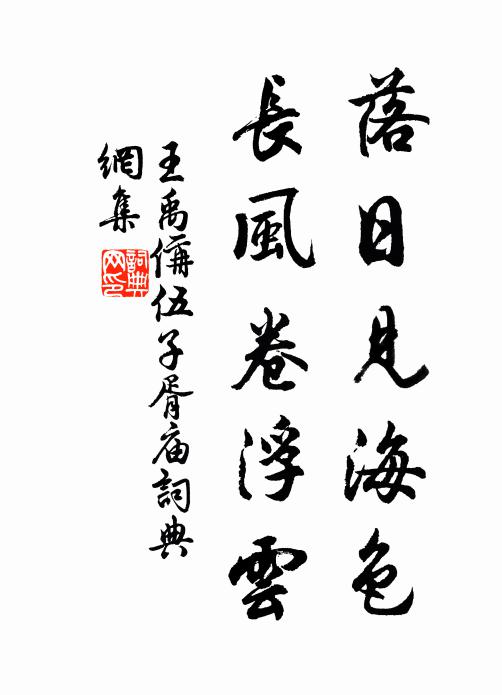 落日見海色
長風卷浮雲
王禹偁伍子胥庙詞典
網集
詞典
网印